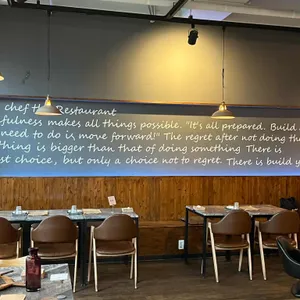 chef the Restaurant
fulness makes all things possible. "It's all prepared. Build
need to do is move forward!" The regret after not doing the
thing is bigger than that of doing something There is
st choice, but only a choice not to regret. There is build y